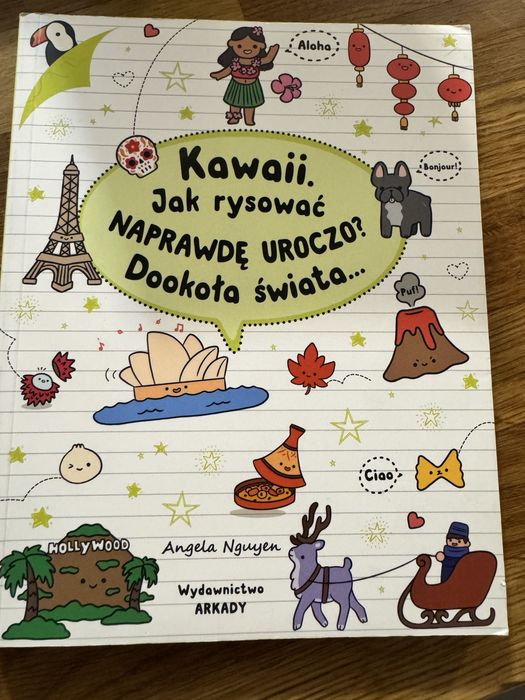 Aloha
Bonjour!
Kawaii.
Jak rysować
NAPRAWDĘ UROCZO?
Dookoła świata...
Puf!
Ciao
HOLLYWOOD
Angela Nguyen
Wydawnictwo
ARKADY